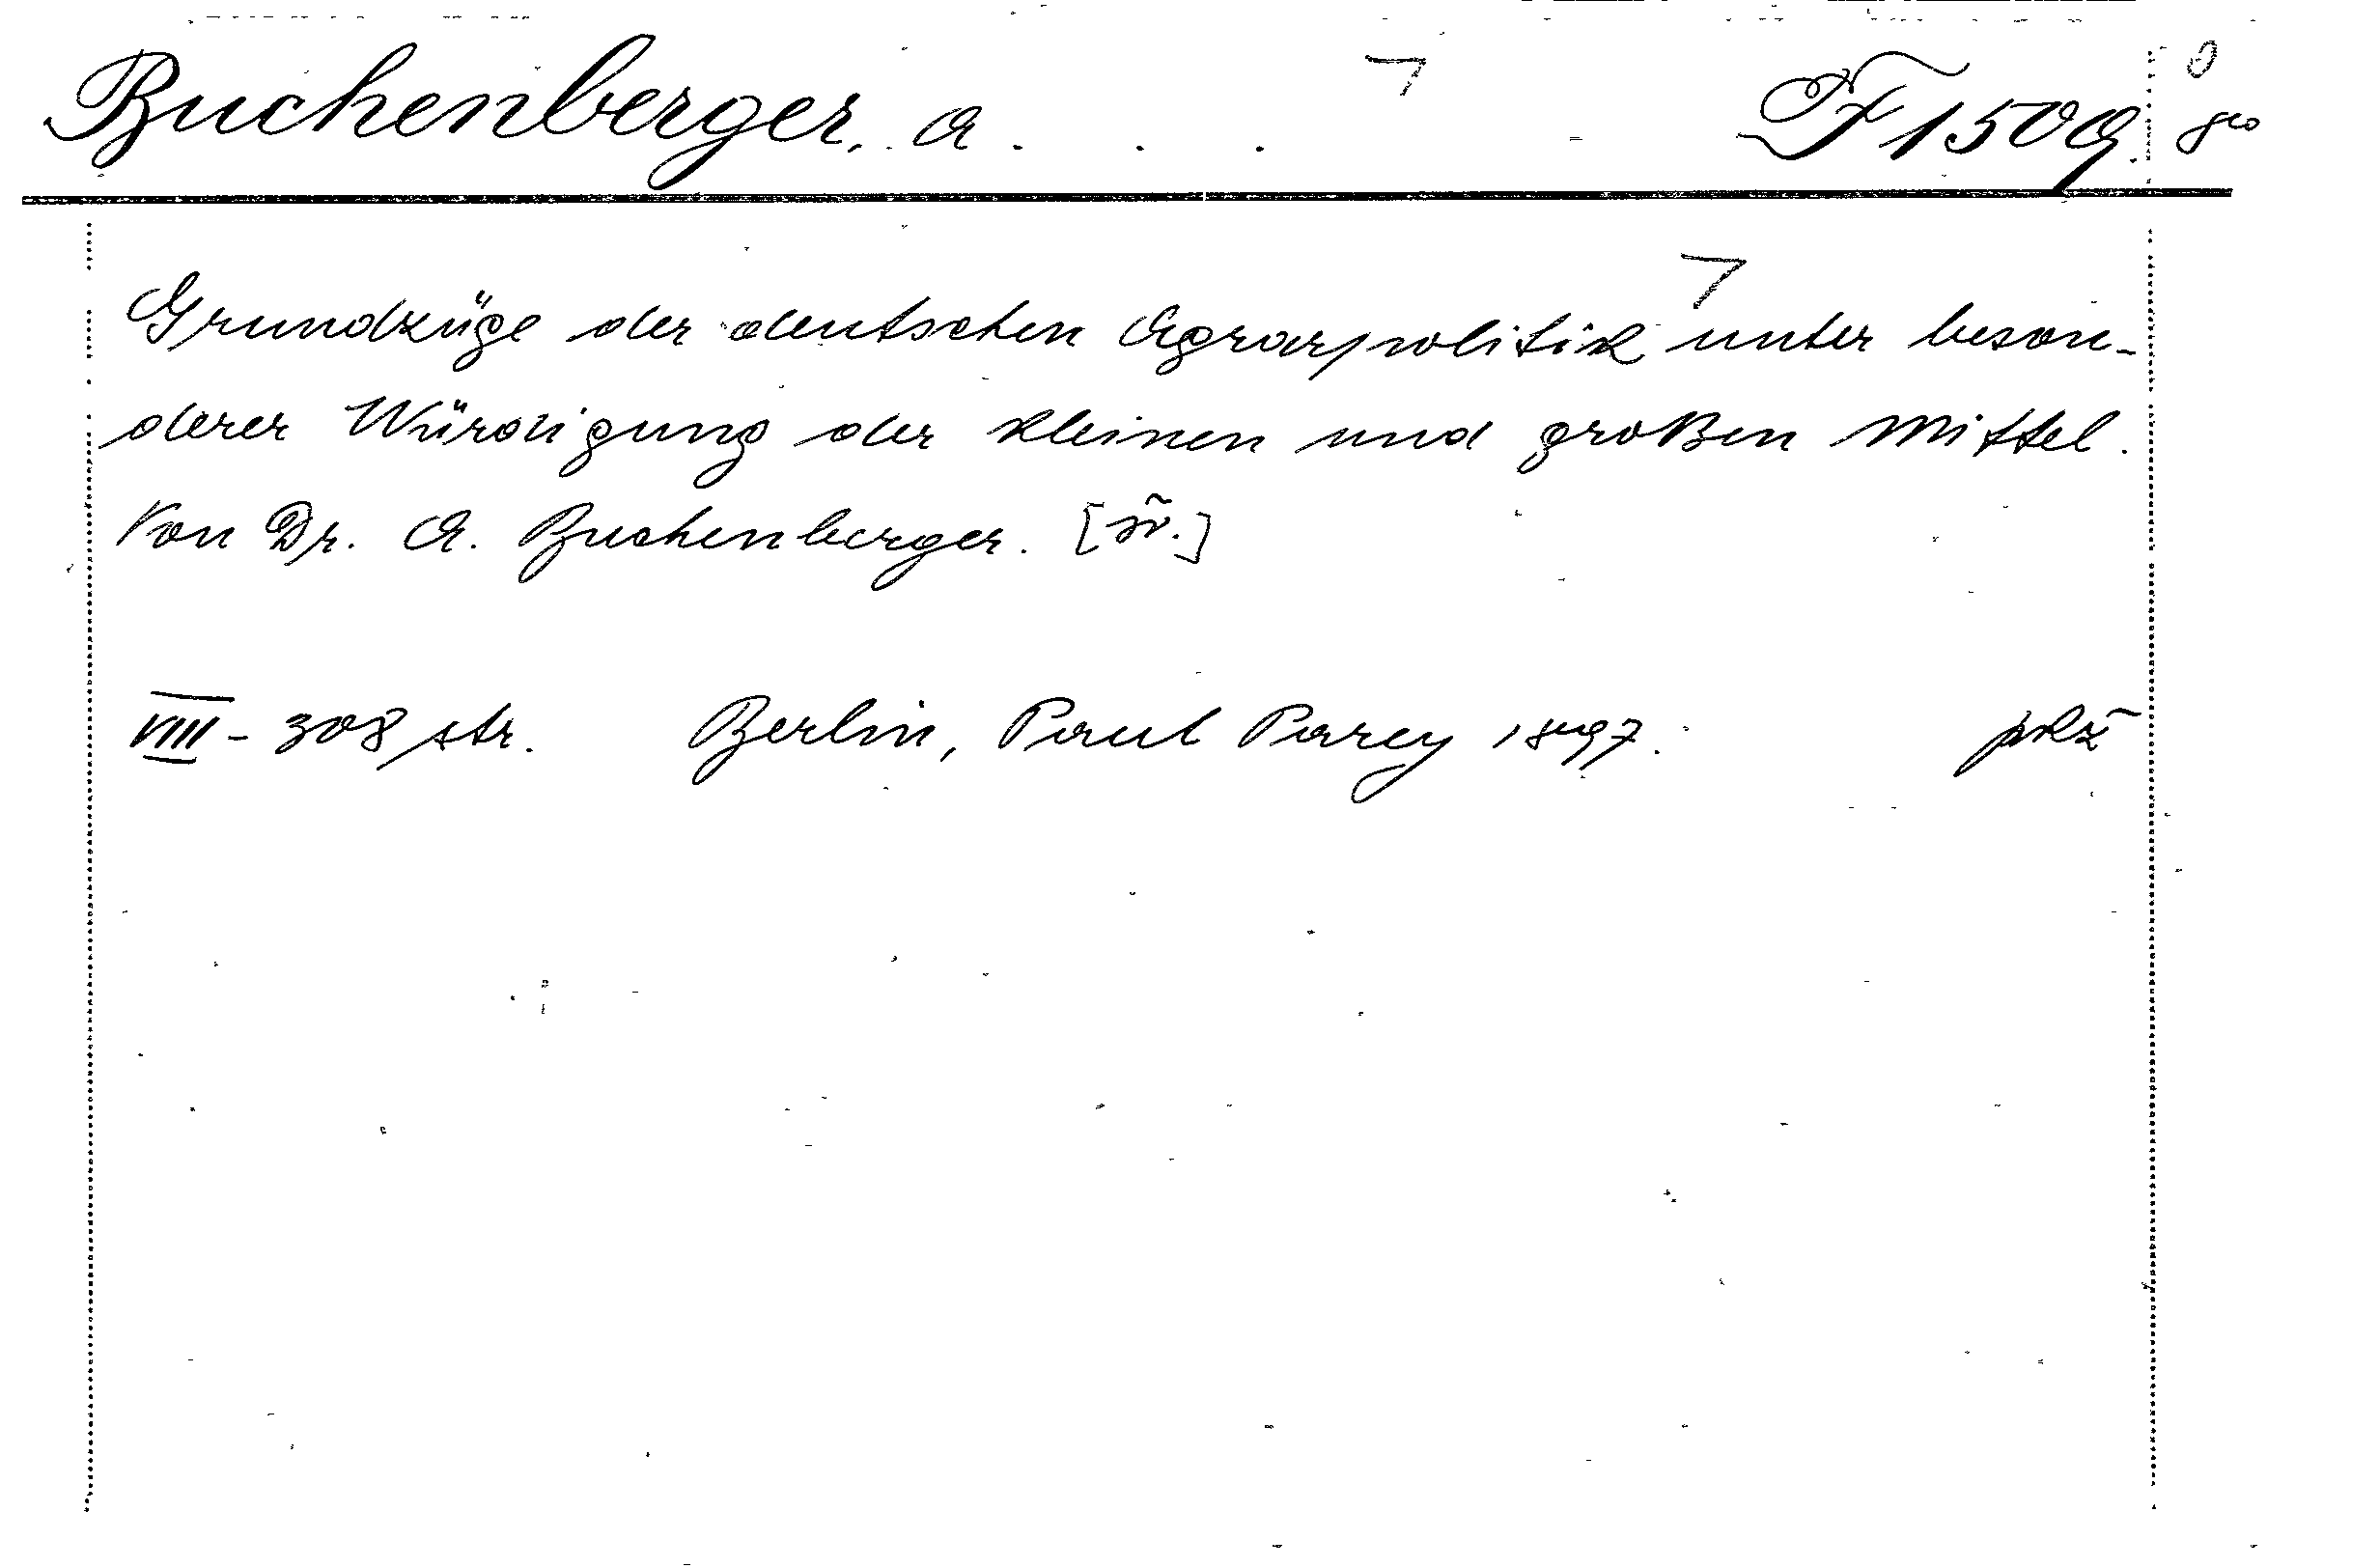 Buchenberger, A. F 1509 8°
Grundzüge der deutschen Agrarpolitik unter beson-
derer Würdigung der kleinen und großen Mittel.
Von Dr. A. Buchenberger.
VIII - 308 str. Berlin, Paul Parey 1897.